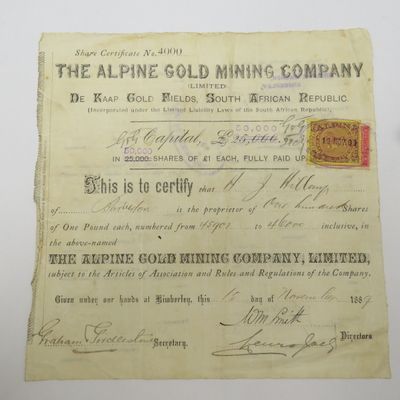 Share Certificate No. 4000
THE ALPINE GOLD MINING COMPANY
(LIMITED)
DE KAAP GOLD FIELDS, SOUTH AFRICAN REPUBLIC.
(Incorporated under the Limited Liability Laws of the South African Republic).
50,000
Capital, £25,000
50,000
IN 25,000 SHARES OF £1 EACH, FULLY PAID UP
ALPINE
This is to certify that H J
of is the proprietor of One Hundred Shares
of One Pound each, numbered from 45901 to 46000 inclusive, in
the above-named
THE ALPINE GOLD MINING COMPANY, LIMITED,
subject to the Articles of Association and Rules and Regulations of the Company.
Given under our hands at Kimberley, this day of November 1889
Wm Smith
Graham Secretary.
Lewis Directors